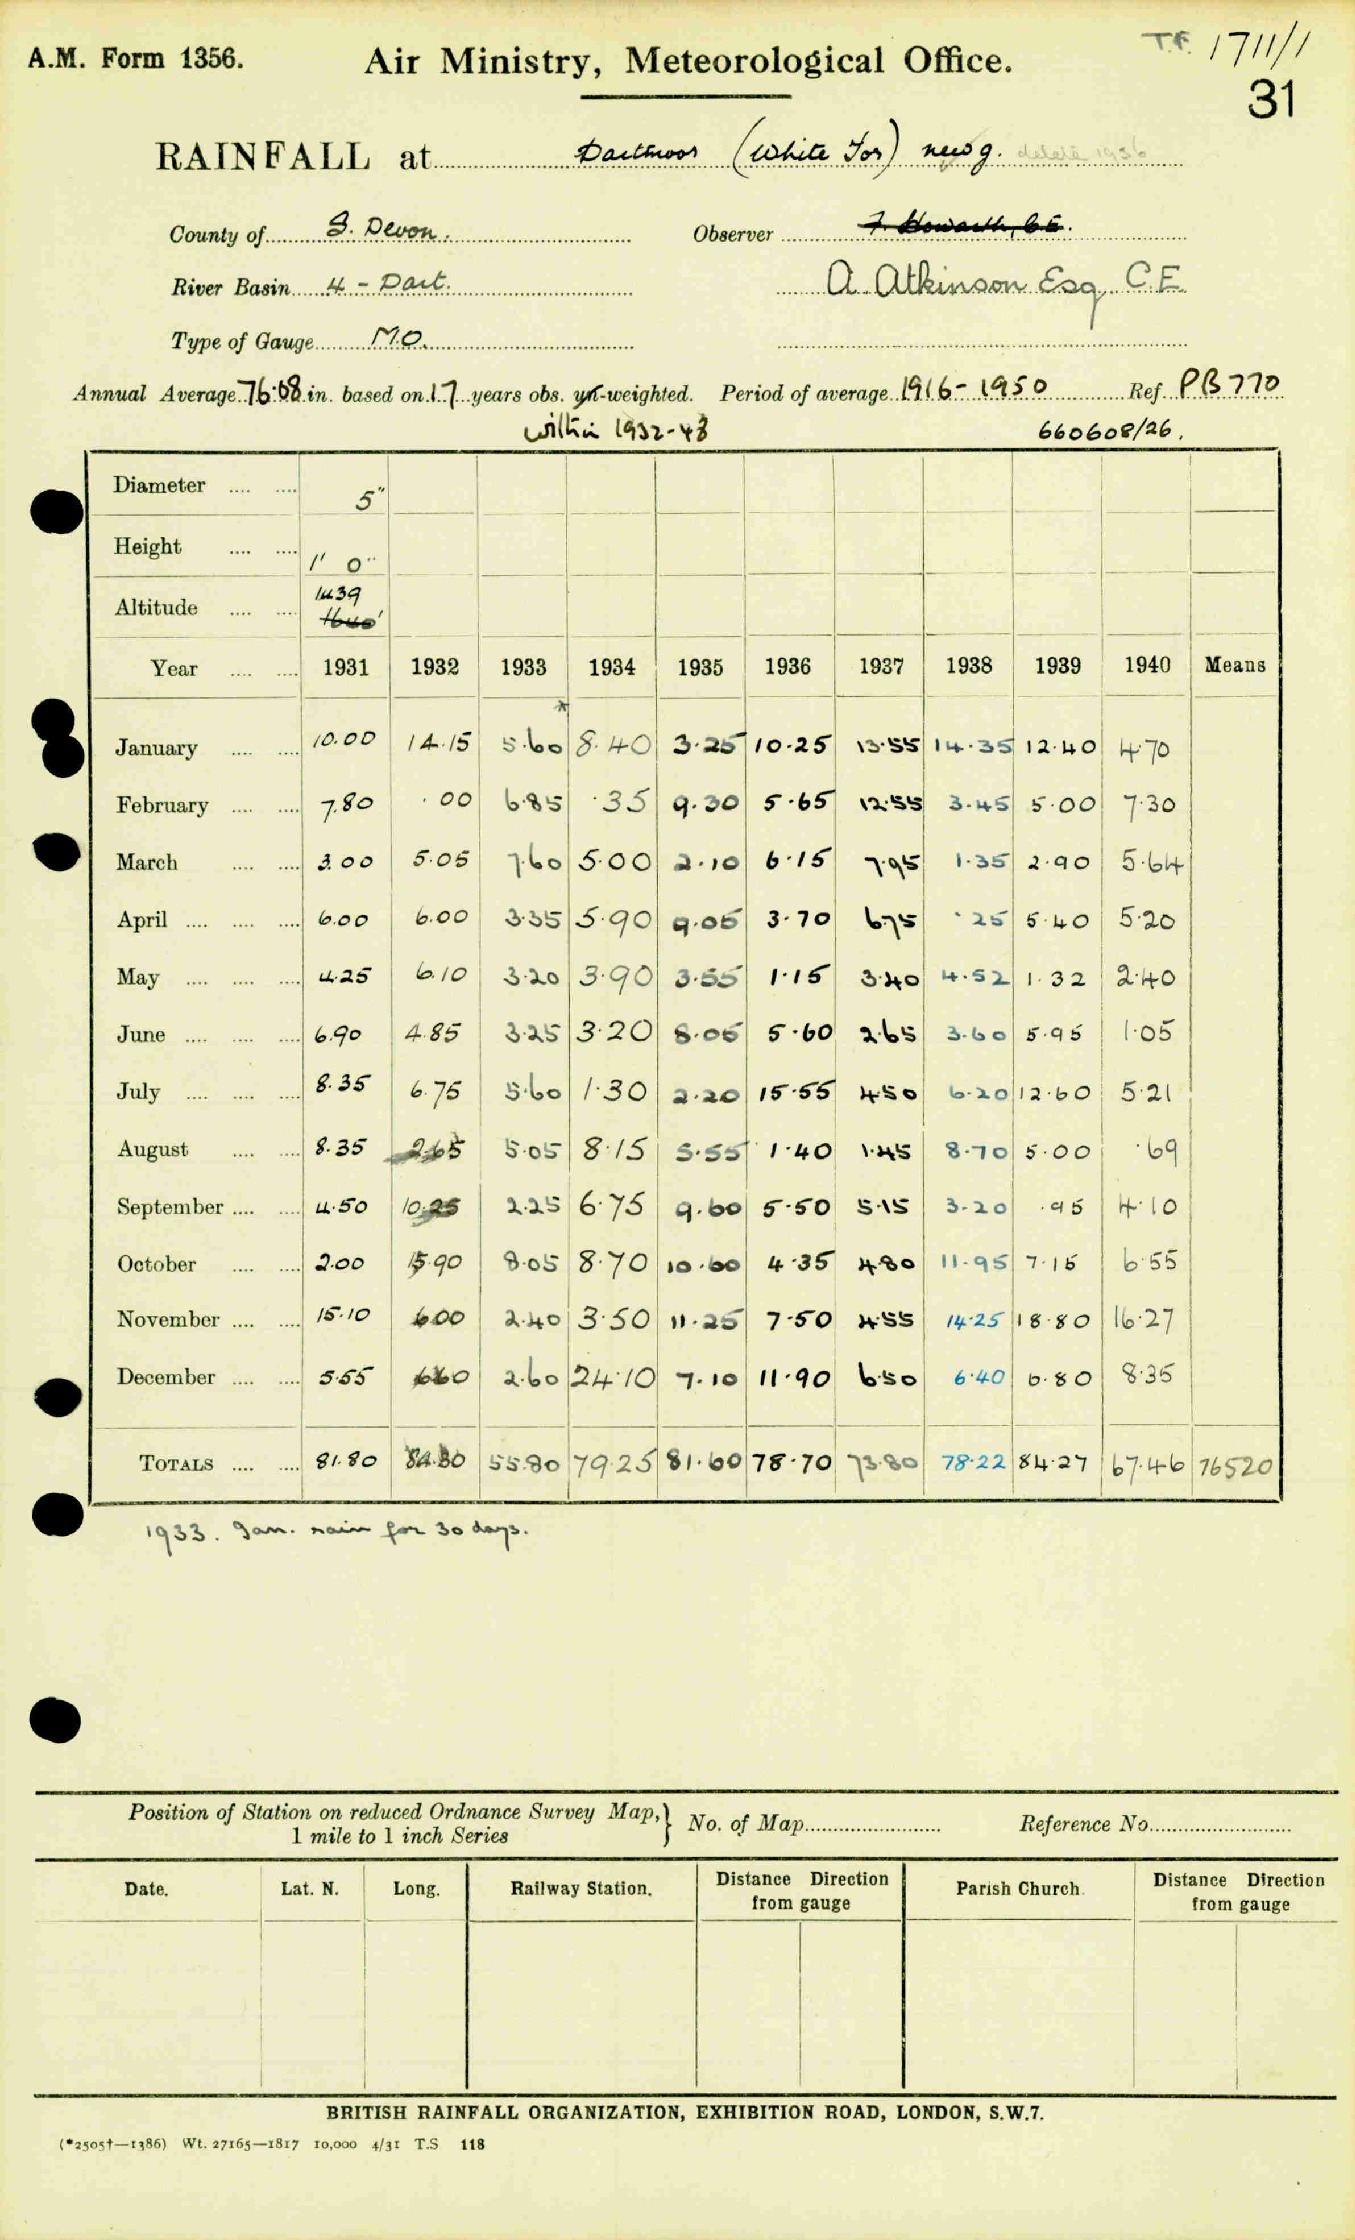 T.F. 1711/1
A.M. Form 1356. Air Ministry, Meteorological Office.
31
RAINFALL at Dartmoor (White Tor) new g. delete 1936
County of S. Devon. Observer F. Howarth, C.E.
River Basin 4 - Dart. A. Atkinson Esq C.E.
Type of Gauge M.O.
Annual Average 76.08 in. based on 17 years obs. un-weighted. Period of average 1916-1950 Ref. PB770
within 1932-48 660608/26.
Diameter .... .... 5"
Height .... .... 1' 0"
Altitude .... .... 1439
Year .... .... 1931 1932 1933 1934 1935 1936 1937 1938 1939 1940 Means
January .... .... 10.00 14.15 *5.60 8.40 3.25 10.25 13.55 14.35 12.40 4.70
February .... .... 7.80 .00 6.85 .35 9.30 5.65 12.55 3.45 5.00 7.30
March .... .... 3.00 5.05 7.60 5.00 2.10 6.15 7.95 1.35 2.90 5.64
April .... .... .... 6.00 6.00 3.35 5.90 9.05 3.70 6.75 .25 5.40 5.20
May .... .... .... 4.25 6.10 3.20 3.90 3.55 1.15 3.40 4.52 1.32 2.40
June .... .... .... 6.90 4.85 3.25 3.20 8.05 5.60 2.65 3.60 5.95 1.05
July .... .... .... 8.35 6.75 5.60 1.30 2.20 15.55 4.50 6.20 12.60 5.21
August .... .... 8.35 2.65 5.05 8.15 5.55 1.40 1.45 8.70 5.00 .69
September .... .... 4.50 10.25 2.25 6.75 9.60 5.50 5.15 3.20 .95 4.10
October .... .... 2.00 15.90 8.05 8.70 10.60 4.35 4.80 11.95 7.15 6.55
November .... .... 15.10 6.00 2.40 3.50 11.25 7.50 4.55 14.25 18.80 16.27
December .... .... 5.55 6.60 2.60 24.10 7.10 11.90 6.50 6.40 6.80 8.35
TOTALS .... .... 81.80 84.30 55.80 79.25 81.60 78.70 73.80 78.22 84.27 67.46 76520
1933. Jan. rain for 30 days.
Position of Station on reduced Ordnance Survey Map, } No. of Map Reference No.
1 mile to 1 inch Series
Date. Lat. N. Long. Railway Station. Distance Direction from gauge Parish Church. Distance Direction from gauge
BRITISH RAINFALL ORGANIZATION, EXHIBITION ROAD, LONDON, S.W.7.
(*2505†—1386) Wt. 27165—1817 10,000 4/31 T.S 118